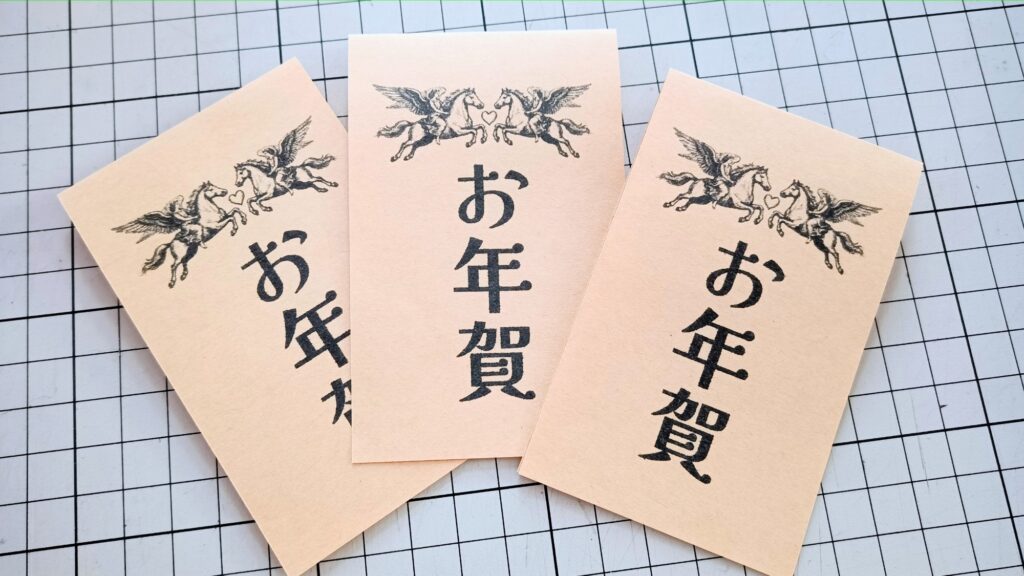 お年賀
お年賀
お年賀